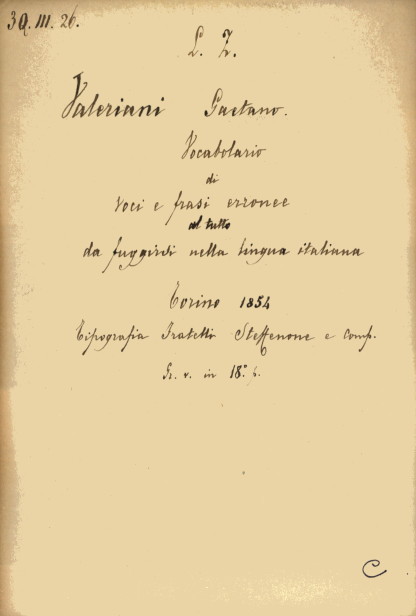 39. III. 26.
L. Z.
Valeriani Gaetano.
Vocabolario
di
voci e frasi erronee
al tutto
da fuggirsi nella lingua italiana
Torino 1854
Tipografia Fratelli Steffenone e comp.
in 18.°
C